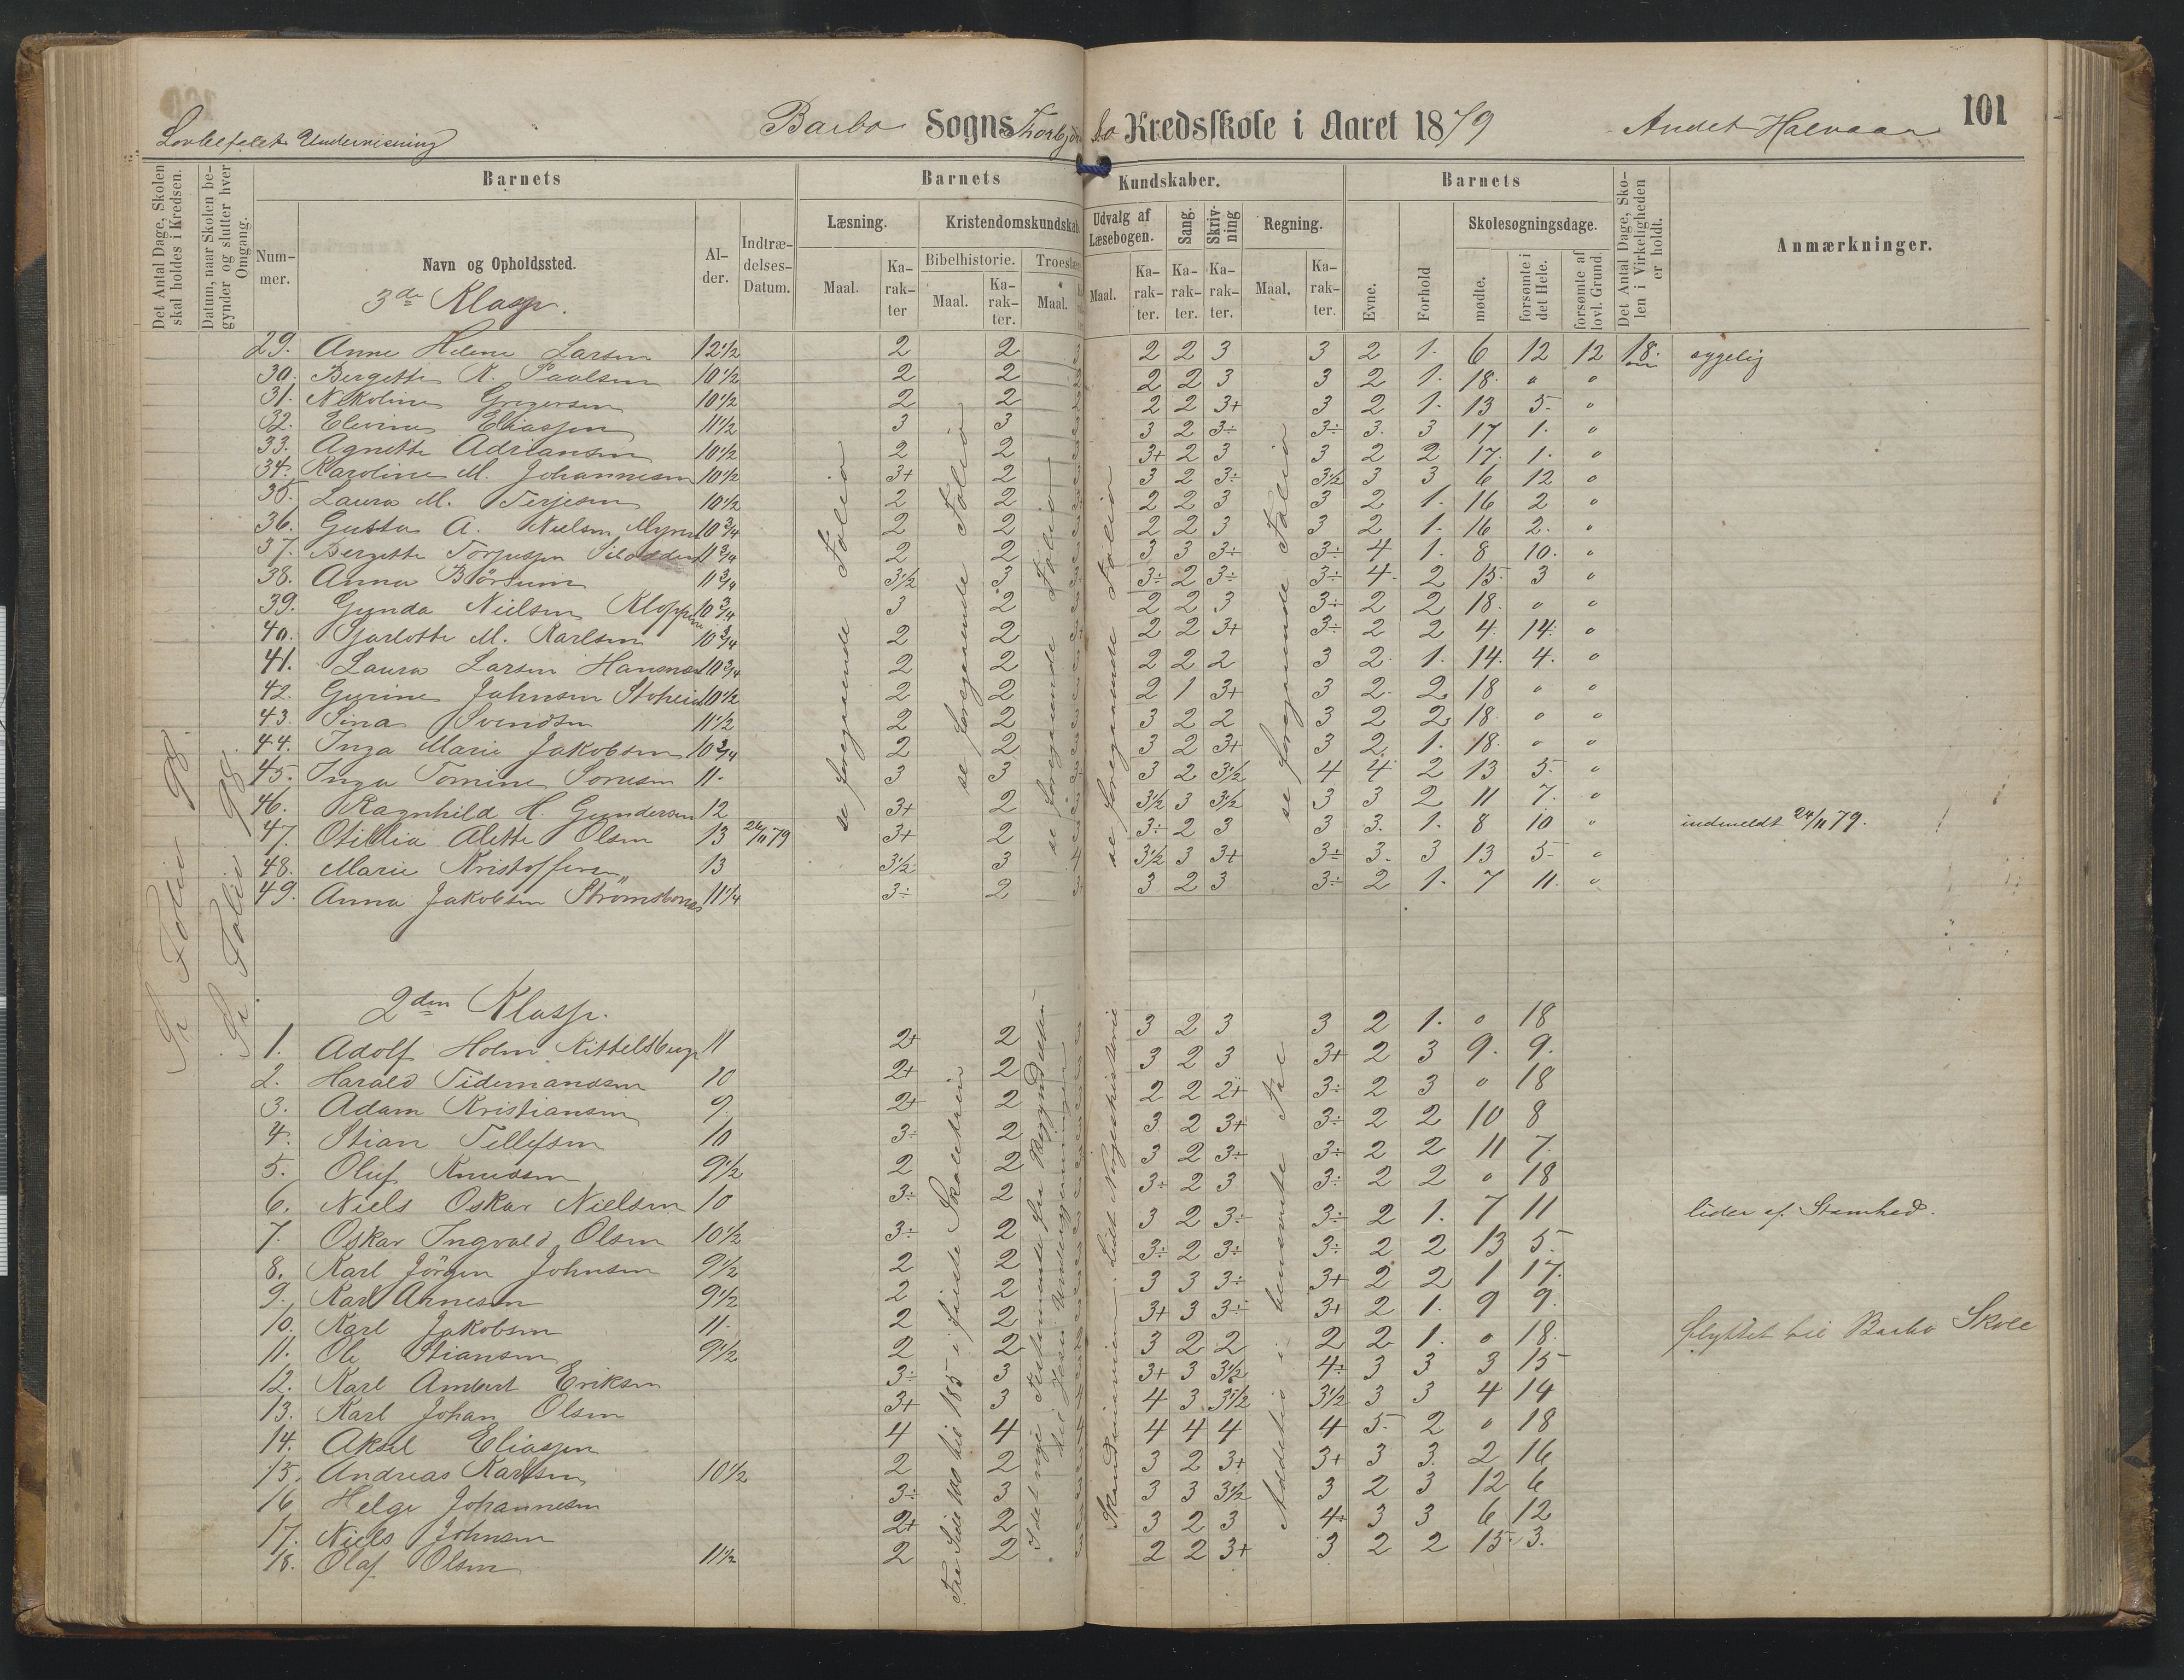 101
Lovbefalet Undervisning
Barbo Sogns Thorbjdn sbo Kredsskole i Aaret 1879 Andet Halvaar
Det Antal Dage, Skolen skal holdes i Kredsen.
Datum, naar Skolen begynder og slutter hver Omgang.
Barnets
Barnets Kundskaber.
Barnets
Det Antal Dage, Skolen i Virkeligheden er holdt.
Anmærkninger.
Nummer.
Navn og Opholdssted.
Alder.
Indtrædelses-Datum.
Læsning.
Kristendomskundskab.
Udvalg af Læsebogen.
Sang.
Skrivning
Regning.
Evne.
Forhold
Skolesøgningsdage.
Bibelhistorie.
Troeslære
Maal. Karakter Maal. Karakter. Maal.
Maal. Karakter. Karakter. Karakter. Maal. Karakter.
mødte. forsømte i det Hele. forsømte af lovl. Grund.
3de Klasse.
29. Anne Helene Larsen 12 1/2 2 2 2 2 3 3 2 1. 6 12 12 18. sygelig
30. Bergette K. Paulsen 10 1/2 2 2 2 2 3 3 2 1. 18. 0 0
31. Nikoline Gregersen 10 1/2 2 2 2 2 3+ 3 2 1. 13 5. 0
32. Elevine Eliassen 11 1/2 3 3 3 2 3÷ 3÷ 3. 3 17 1. 0
33. Agnette Adriansen 10 1/2 2 2 3+ 2 3 3 2 2 17. 1. 0
34. Karoline M. Johannesen 10 1/2 3+ 2 3 2 3÷ 3 1/2 3 3 6 12 0
35. Laura M. Terjesen 10 1/2 2 2 2 2 3 3 2 1. 16 2 0
36. Gusta A. Nielsen Myren 10 3/4 2 2 2 2 3 3 2 1. 16 2. 0
37. Bergette Torjussen 11 3/4 2 2 3 3 3÷ 3÷ 4 1. 8 10. 0
38. Anna Børsum 11 3/4 3 1/2 3 3÷ 2 3÷ 3÷ 4. 2 15. 3 0
39. Gunda Nielsen Kloppene 10 3/4 3 2 2 2 3 3÷ 2 2 18. 0 0
40. Sjarlotte M. Karlsen 10 3/4 2 2 2 2 3+ 3÷ 2 2 4. 14. 0
41. Laura Larsen 10 3/4 2 2 2 2 2 3 2. 1. 14. 4. 0
42. Gurine Johnsen 10 1/2 2 2 2 1 3+ 3 2. 2 18 0 0
43. Sina Svendsen 11 1/2 2 2 3 2 2 3 2 2 18. 0 0
44. Inga Marie Jakobsen 10 3/4 2 2 3 2 3+ 3 2. 1. 18. 0 0
45. Inga Tomine 11. 3 3 3 2 3 1/2 4 4 2 13 5. 0
46. Ragnhild H. Gundersen 12 3+ 2 3 1/2 3 3 1/2 3 3 2 11 7. 0
47. Otillia Alette Olsen 13 24/11 79 3+ 2 3÷ 2 3 3 3. 1. 8 10 0 indmeldt 24/11 79.
48. Marie Kristoffersen 13 3 1/2 3 3 1/2 3 3+ 3÷ 3. 3 13 5. 0
49. Anna Jakobsen Strømsbonæs 11 1/4 3÷ 2 3 2 3 3÷ 2 1. 7 11. 0
se foregaaende Folio
se foregaaende Folio
se foregaaende Folio
se foregaaende Folio
se foregaaende Folio
Se Folio 98.
Se Folio 98.
2den Klasse.
1. Adolf Holm Kittelsbugt 11 2+ 2 3 2 3 3 2 1. 0 18
2. Harald Tidemandsen 10 2+ 2 3 2 3 3+ 2 3 9. 9.
3. Adam Kristiansen 9 2+ 2 2 2 2+ 3÷ 2 3 0 18
4. Stian Tellefsen 10 3÷ 2 3 2 3+ 3÷ 2 2 10 8
5. Oluf Knudsen 9 1/2 2 2 3 2 3÷ 3÷ 2 2 11 7.
6. Niels Oskar Nielsen 10 3÷ 2 3÷ 2 3 3÷ 2 2 0 18
7. Oskar Ingvald Olsen 10 1/2 3÷ 2 3 2 3÷ 3÷ 2 1. 7 11 lider af Stamhed.
8. Karl Jørgen Johnsen 9 1/2 2 2 3÷ 2 3÷ 3÷ 2 2 13 5.
9. Karl Arnesen 9 1/2 2 2 3 3 3÷ 3+ 2 2 1 17.
10. Karl Jakobsen 11. 2 2 3+ 3 3÷ 3+ 2 1. 9 9.
11. Ole Stiansen 9 1/2 2 2 3 2 2 2 2 1. 0 18. flyttet til Barbo Skole
12. Karl Ambert Eriksen 3÷ 3 3+ 3 3 1/2 4÷ 3 3 3 15
13. Karl Johan Olsen 3+ 3 4 3 3 1/2 3 1/2 3 3 4 14
14. Aksel Eliassen 4 4 4 4 4 4 5. 2 0 18
15. Andreas Karlsen 10 1/2 2 2 3 2 3+ 3+ 3 3. 2 16
16 Helge Johannesen 3÷ 3 3 3 3 1/2 3 2 3 12 6
17. Niels Johnsen 2+ 2 3 2 3 4÷ 3 3 6 12
18. Olaf Olsen 11 1/2 2 2 2 2 3+ 3 2 2 15. 3.
Fra Side 100 til 185 i første Skoletrin
I det nye Testamente fra Begyndelsen til Jesu Undergjerninger
Skandinavien. Lidt Norgeshistorie
Addetio i benævnte Tal